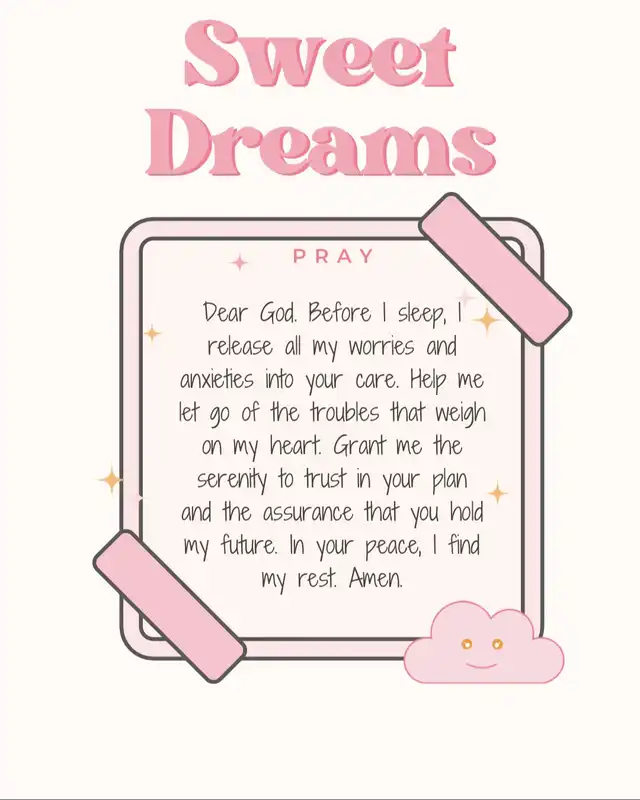 Sweet
Dreams
PRAY
Dear God. Before I sleep, I
release all my worries and
anxieties into your care. Help me
let go of the troubles that weigh
on my heart. Grant me the
serenity to trust in your plan
and the assurance that you hold
my future. In your peace, I find
my rest. Amen.